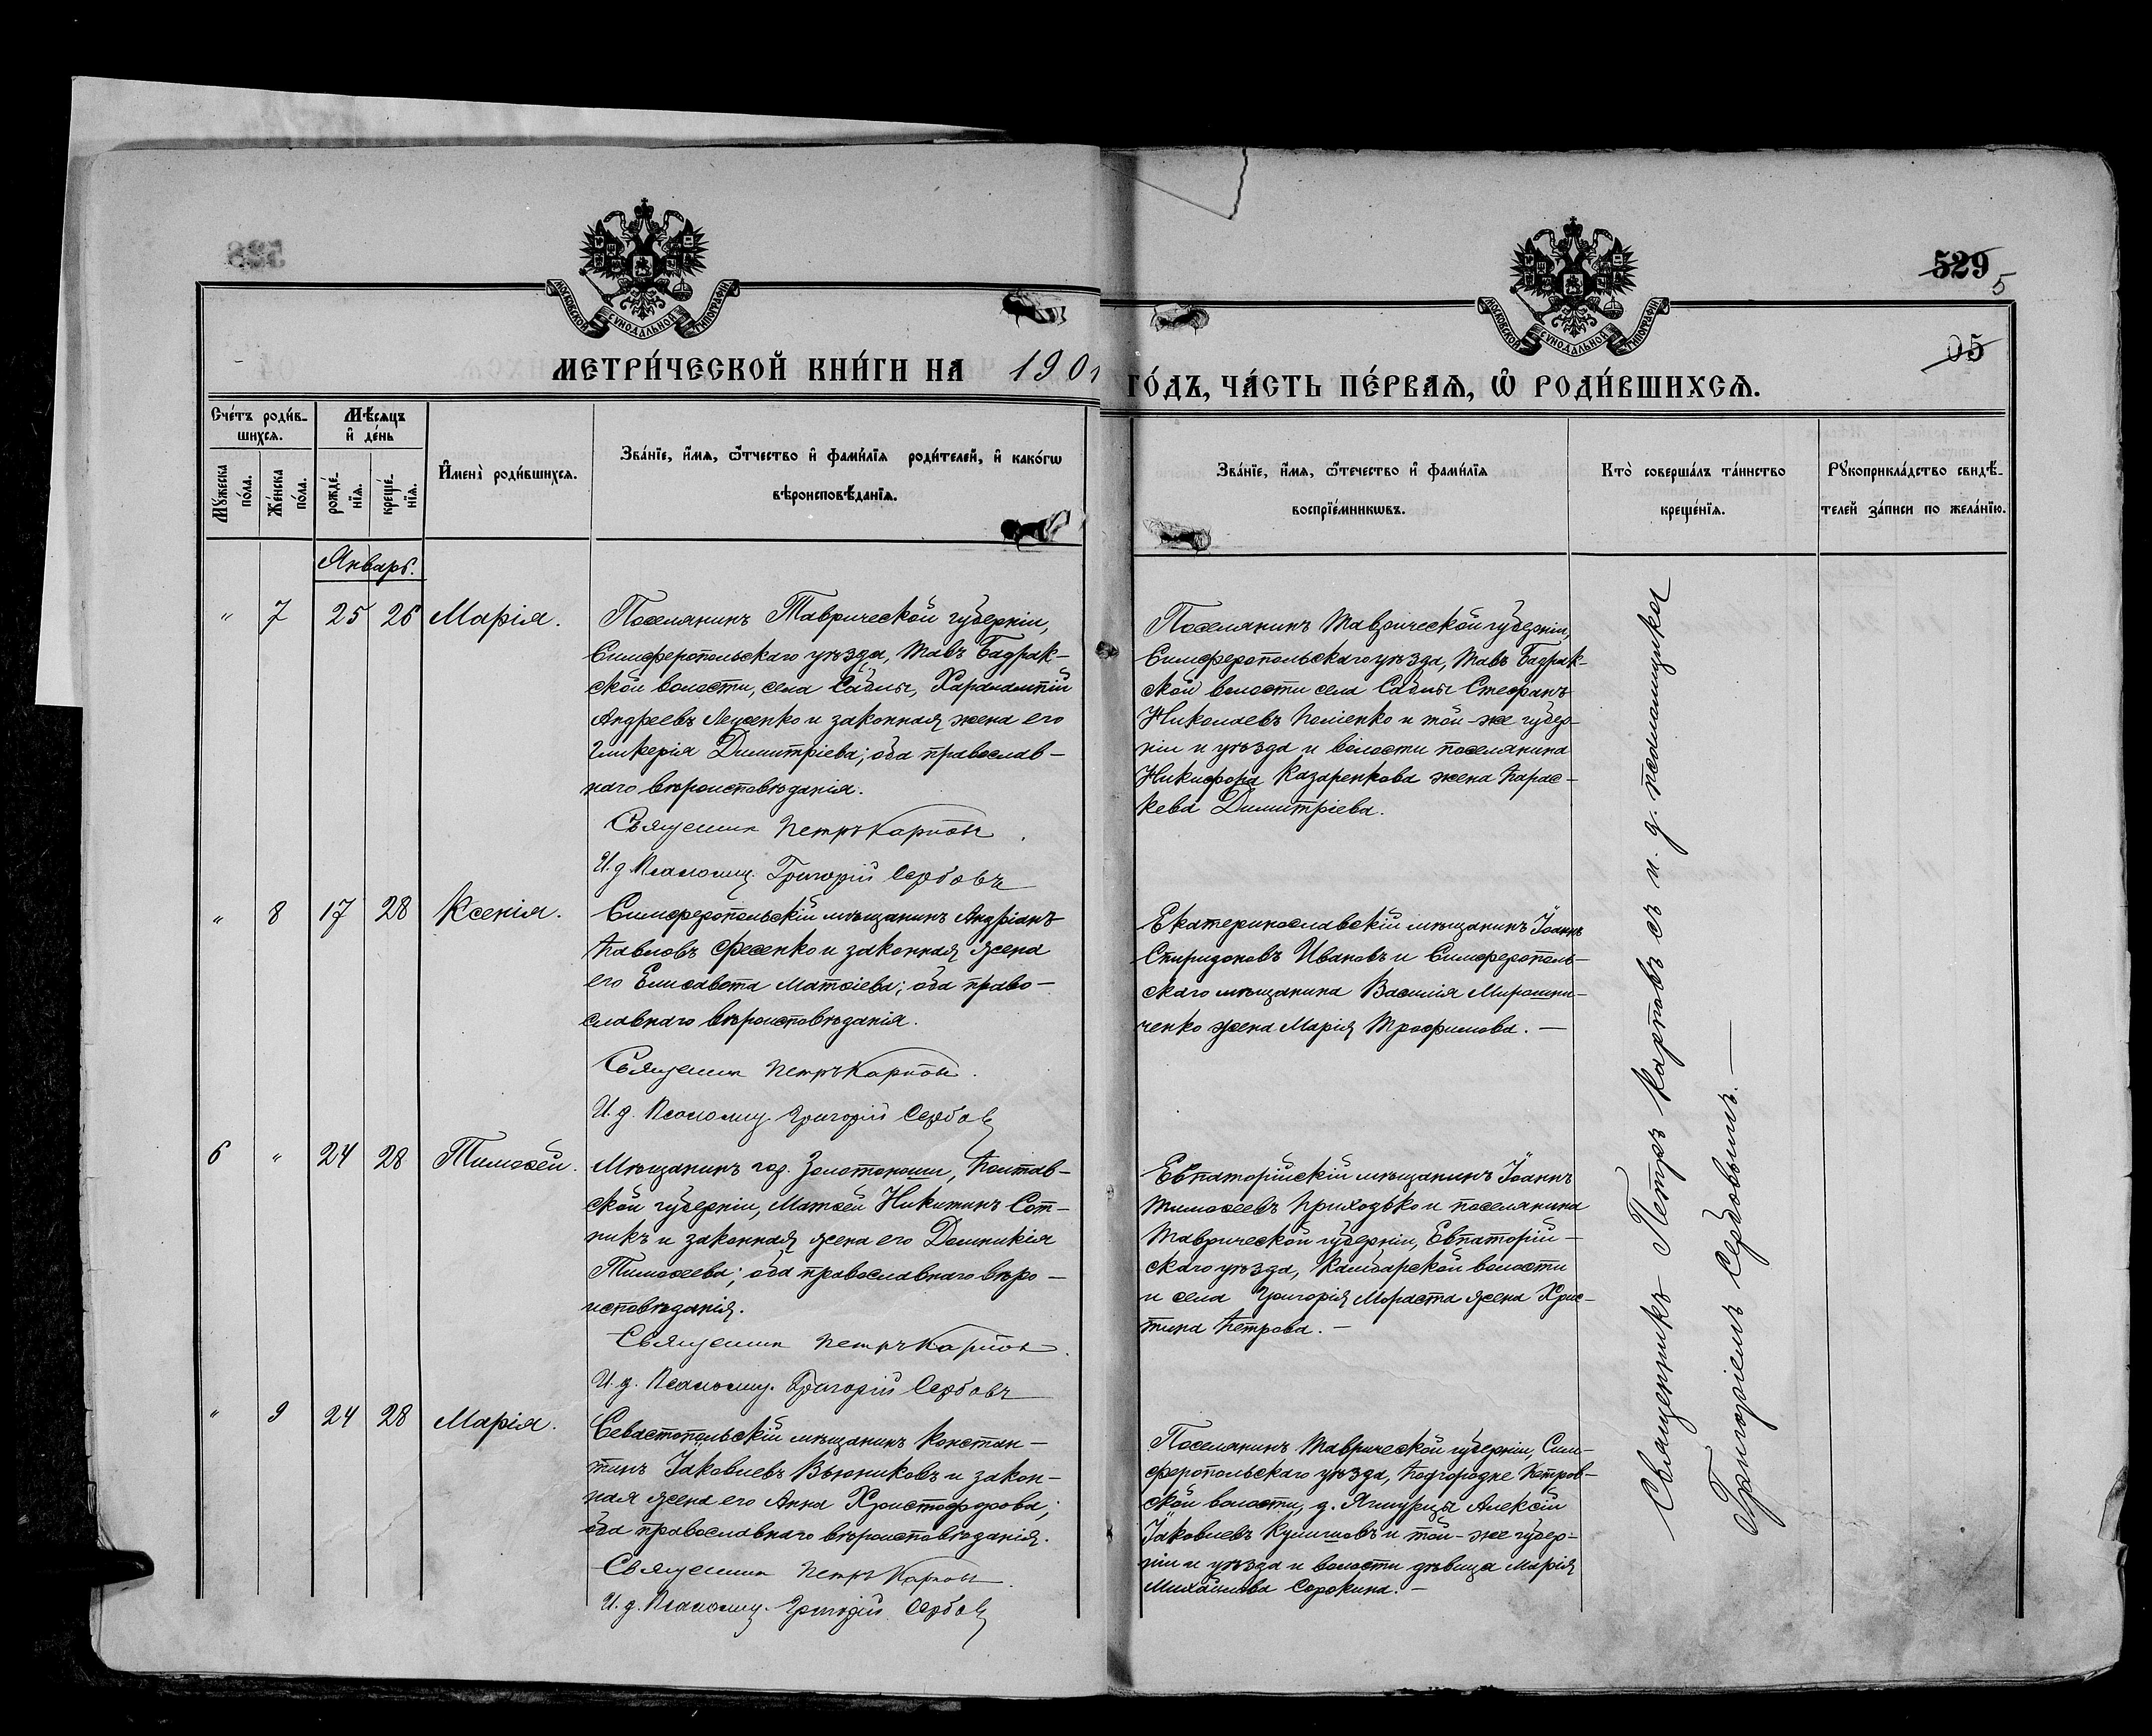 529
5
05
МОСКОВСКОЙ СѴНОДАЛЬНОЙ ТИПОГРАФІИ
МОСКОВСКОЙ СѴНОДАЛЬНОЙ ТИПОГРАФІИ
МЕТРИ́ЧЕСКОЙ КНИ́ГИ НА 190
ГО́ДЪ, ЧА́СТЬ ПЕ́РВАѦ, Ѽ РОДИ́ВШИХСѦ.
Сче́тъ роди́в-
шихсѧ.
Мѣ́сѧцъ
и҆ де́нь
Мꙋ́жеска
по́ла.
Же́нска
по́ла.
рожде́-
нїѧ.
креще́-
нїѧ.
И҆мена̀ роди́вшихсѧ.
Зва́нїе, и҆́мѧ, ѻ҆́тчество и҆ фами́лїѧ роди́телей, и҆ како́гѡ
вѣроисповѣ́данїѧ.
Зва́нїе, и҆́мѧ, ѻ҆́течество и҆ фами́лїѧ
воспрїе́мникѡвъ.
Кто̀ соверша́лъ та́инство
креще́нїѧ.
Рꙋкоприкла́дство свидѣ́-
телей за́писи по жела́нїю.
Январь.
" 7 25 26 Марія.
Поселянинъ Таврической губерніи,
Симферопольскаго уѣзда, Тавъ Бадрак-
ской волости, села Саблы, Харалампій
Андреевъ Луценко и законная жена его
Гликерія Димитріева; оба православ-
наго вѣроисповѣданія.
Священник Петръ Карпов
И. д. Псаломщ. Григорій Сербовъ
Поселянинъ Таврической губерніи,
Симферопольскаго уѣзда, Тавъ Бадрак-
ской волости села Саблы Стефанъ
Николаевъ и той-же губер-
ніи и уѣзда и волости поселянина
Никифора Казаренкова жена Парас-
кева Димитріева.
" 8 17 28 Ксенія.
Симферопольскій мѣщанинъ Андріанъ
Павловъ Фесенко и законная жена
его Елисавета Матѳіева; оба право-
славнаго вѣроисповѣданія.
Священник Петръ Карпов.
И. д. Псаломщ. Григорій Сербов
Екатеринославскій мѣщанинъ Іоаннъ
Спиридоновъ Ивановъ и Симферополь-
скаго мѣщанина Василія Мирошни-
ченко жена Марія Трофимова. —
6 " 24 28 Тимоѳей.
Мѣщанинъ гор. Золотоноши, Полтав-
ской губерніи, Матѳей Никитинъ Сот-
никъ и законная жена его Домникія
Тимоѳеева; оба православнаго вѣро-
исповѣданія.
Священник Петръ Карпов.
И. д. Псаломщ. Григорій Сербовъ
Евпаторійскій мѣщанинъ Іоаннъ
Тимоѳеевъ Приходько и поселянина
Таврической губерніи, Евпаторій-
скаго уѣзда, Камбарской волости
и села Григорія Мораста жена Хрис-
тина Петрова. —
" 9 24 28 Марія.
Севастопольскій мѣщанинъ Констан-
тинъ Іаковлевъ Вьюниковъ и закон-
ная жена его Анна Христофорова;
оба православнаго вѣроисповѣданія.
Священник Петръ Карпов.
И. д. Псаломщ. Григорій Сербов
Поселянинъ Таврической губерніи, Сим-
феропольскаго уѣзда, Подгородне Петров-
ской волости, д. Алексій
Іаковлевъ и той-же губер-
ніи и уѣзда и волости дѣвица Марія
Михайлова Сорокина. —
Священникъ Петръ Карповъ съ и. д. псаломщика
Григоріемъ Сербовымъ. —